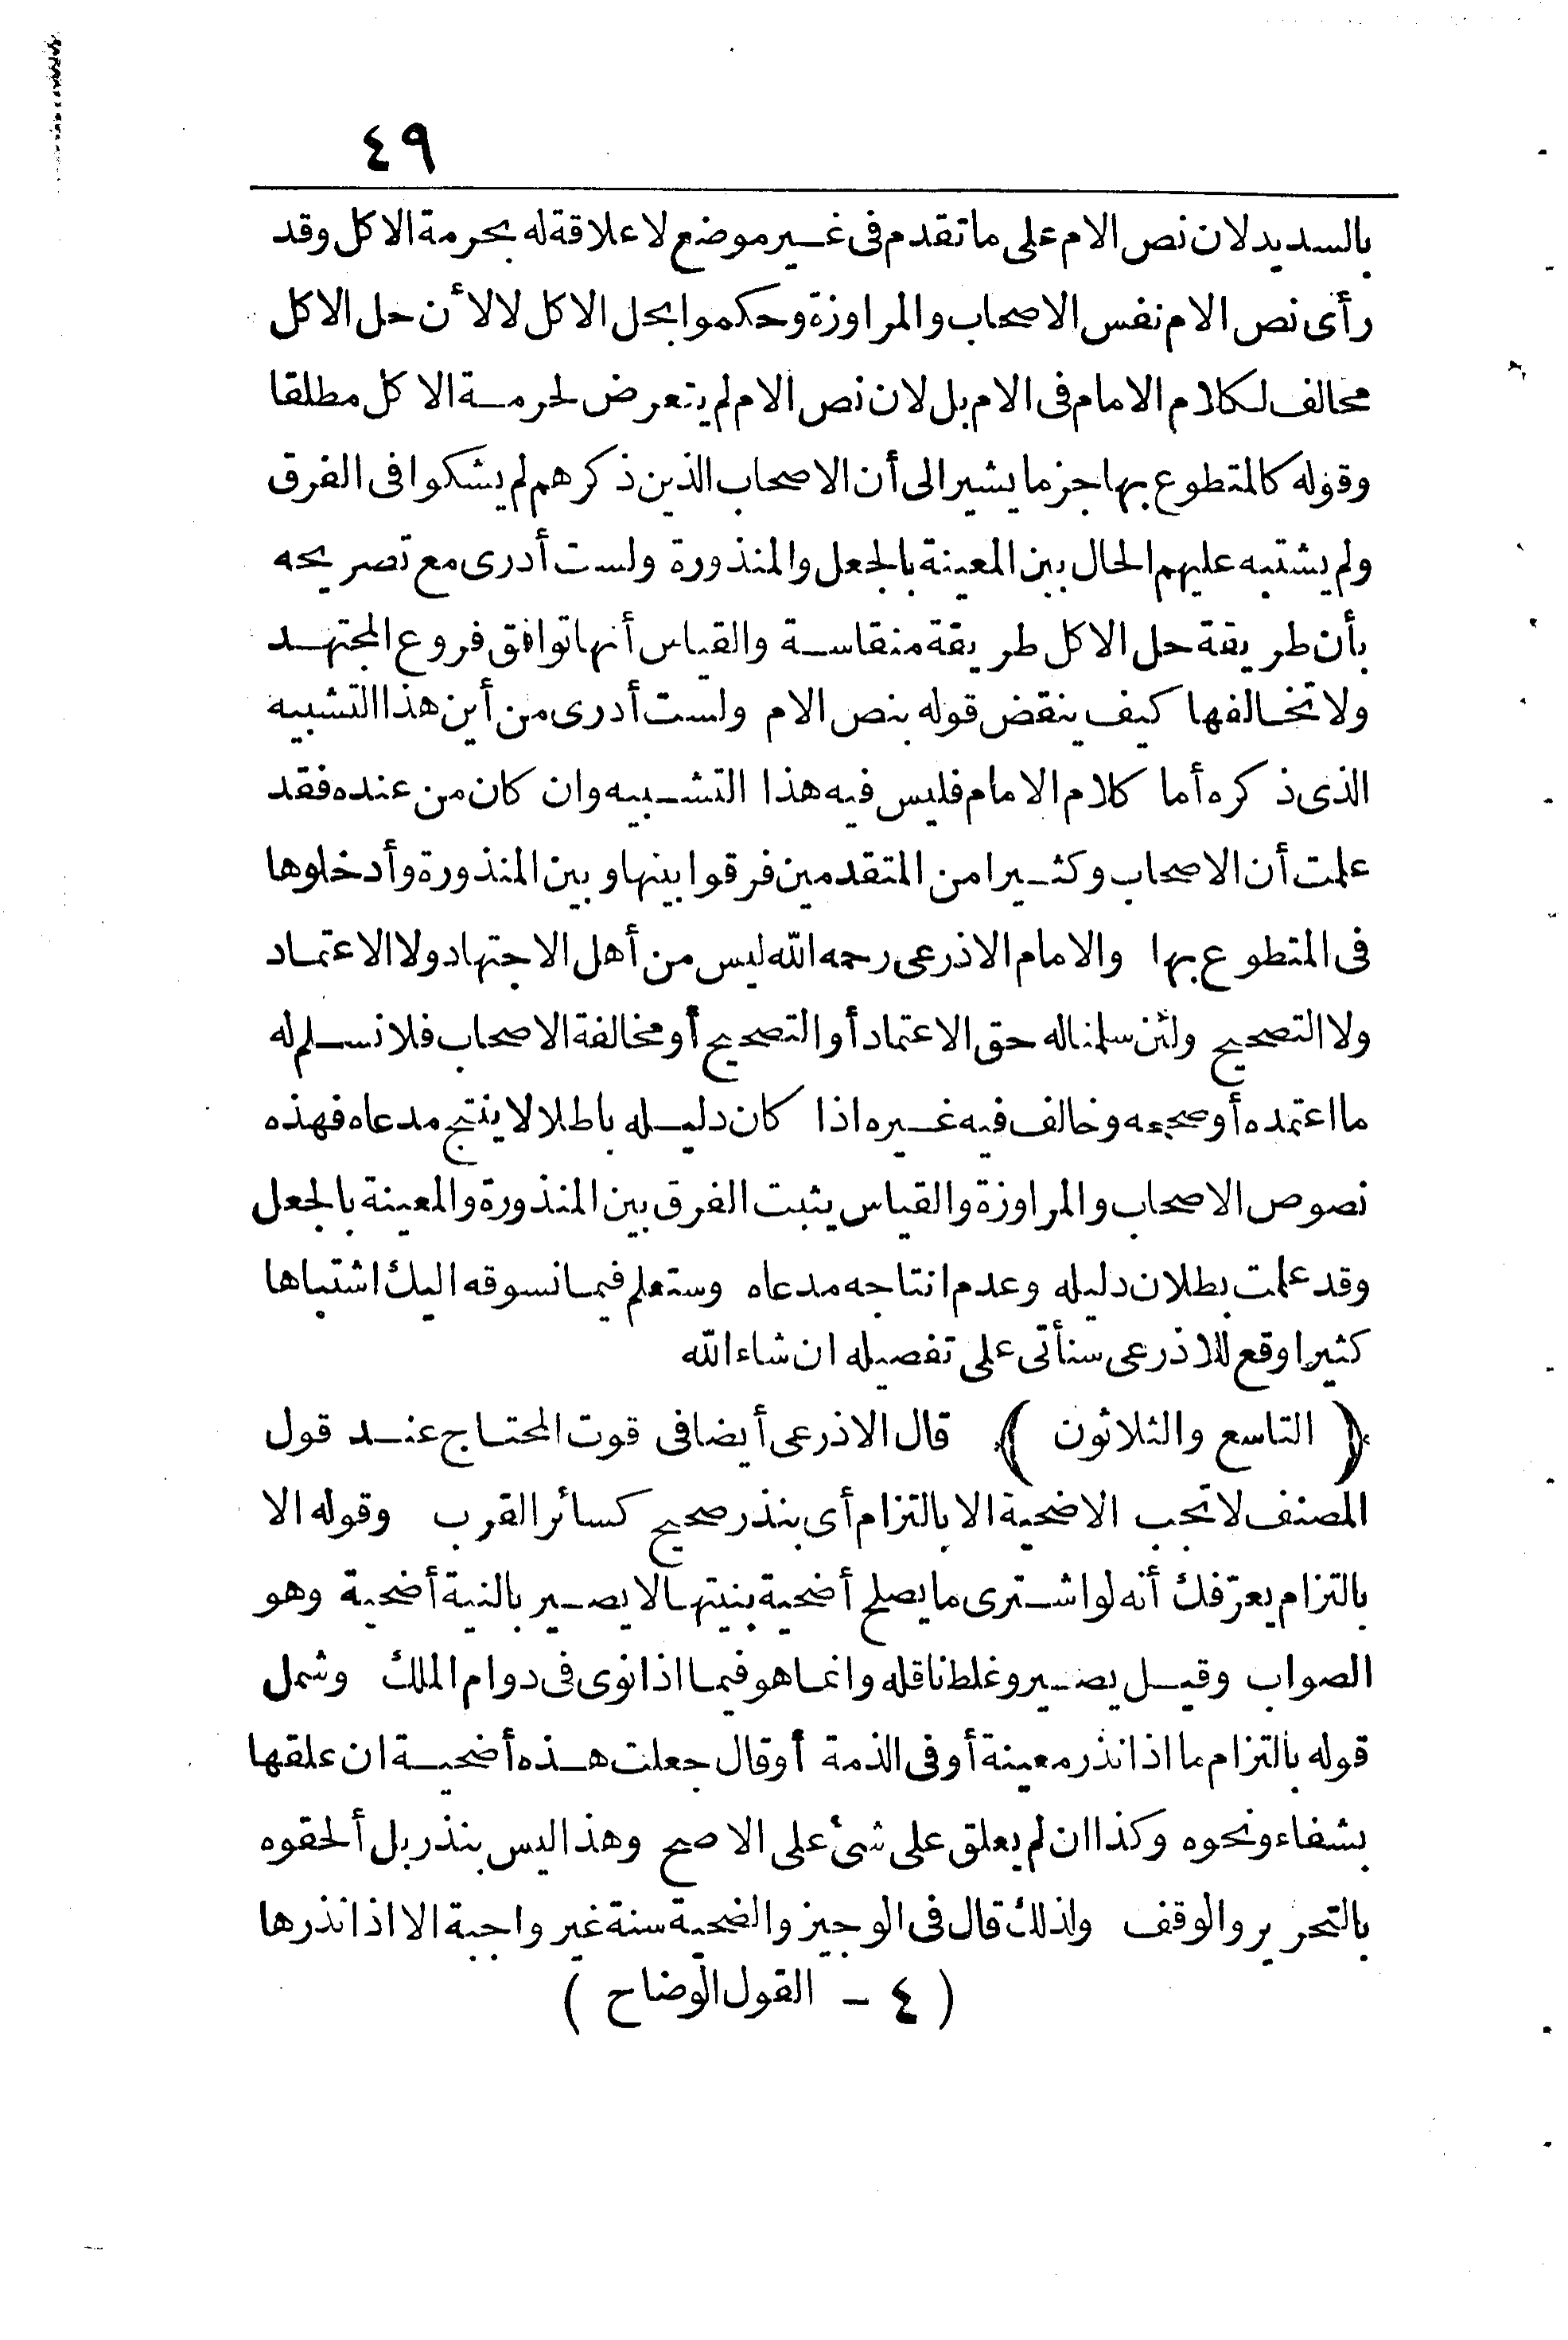 ٤٩
بالسديد لان نص الام على ما تقدم فى غير موضع لا علاقة له بحرمة الا كل وقد
رأى نص الام نفس الاصحاب والمراوزة وحكموا بحل الا كل لا لأن حل الا كل
مخالف لكلام الامام فى الام بل لان نص الام لم يتعرض لحرمة الا كل مطلقا
وقوله كالمتطوع بها جزما يشير الى أن الاصحاب الذين ذكرهم لم يشكوا فى الفرق
ولم يشتبه عليهم الحال بين المعينة بالجعل والمنذورة ولست أدرى مع تصريحه
بأن طريقة حل الا كل طريقة منقاسة والقياس أنها توافق فروع المجتهد
ولا تخالفها كيف ينقض قوله بنص الام ولست أدرى من أين هذا التشبيه
الذى ذكره أما كلام الامام فليس فيه هذا التشبيه وان كان من عنده فقد
علمت أن الاصحاب وكثيرا من المتقدمين فرقوا بينها وبين المنذورة وأدخلوها
فى المتطوع بها والامام الاذرعى رحمه الله ليس من أهل الاجتهاد ولا الاعتماد
ولا التصحيح ولئن سلمنا له حق الاعتماد أو التصحيح أو مخالفة الاصحاب فلا نسلم له
ما اعتمده أو صححه وخالف فيه غيره اذا كان دليله باطلا لا ينتج مدعاه فهذه
نصوص الاصحاب والمراوزة والقياس يثبت الفرق بين المنذورة والمعينة بالجعل
وقد علمت بطلان دليله وعدم انتاجه مدعاه وستعلم فيما نسوقه اليك اشتباها
كثيرا وقع للاذرعى سنأتى على تفصيله ان شاء الله
﴿ التاسع والثلاثون ﴾ قال الاذرعى أيضا فى قوت المحتاج عند قول
المصنف لا تجب الاضحية الا بالتزام أى بنذر صحيح كسائر القرب وقوله الا
بالتزام يعرّفك أنه لو اشترى ما يصلح أضحية بنيتها لا يصير بالنية أضحية وهو
الصواب وقيل يصير وغلط ناقله وانما هو فيما اذا نوى فى دوام الملك وشمل
قوله بالتزام ما اذا نذر معينة أو فى الذمة أو قال جعلت هذه أضحية ان علقها
بشفاء ونحوه وكذا ان لم يعلق على شئ على الاصح وهذا ليس بنذر بل ألحقوه
بالتحرير والوقف ولذلك قال فى الوجيز والضحية سنة غير واجبة الا اذا نذرها
( ٤ - القول الوضاح )